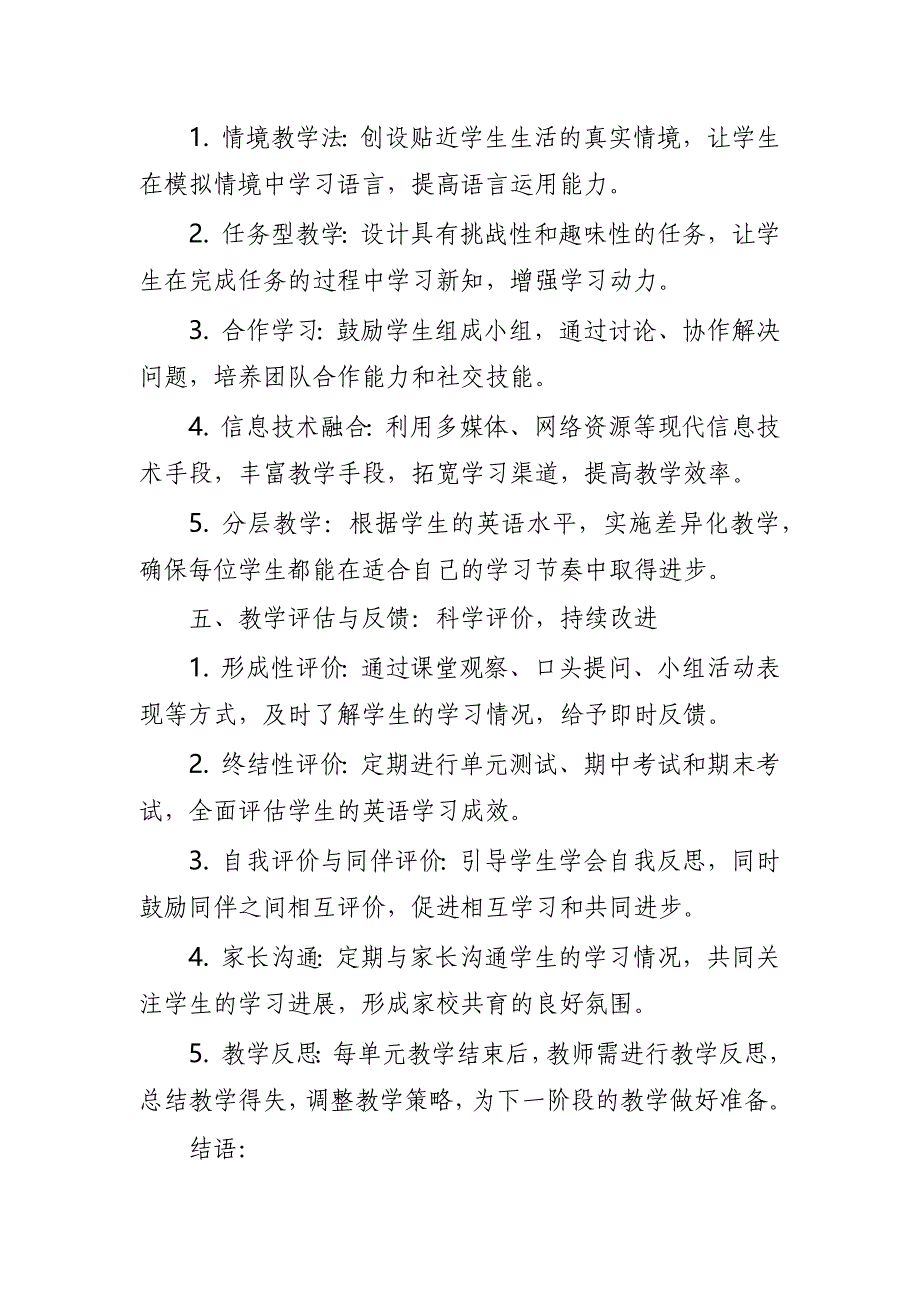 1. 情境教学法: 创设贴近学生生活的真实情境，让学生
在模拟情境中学习语言，提高语言运用能力。
2. 任务型教学: 设计具有挑战性和趣味性的任务，让学
生在完成任务的过程中学习新知，增强学习动力。
3. 合作学习: 鼓励学生组成小组，通过讨论、协作解决
问题，培养团队合作能力和社交技能。
4. 信息技术融合: 利用多媒体、网络资源等现代信息技
术手段，丰富教学手段，拓宽学习渠道，提高教学效率。
5. 分层教学：根据学生的英语水平，实施差异化教学，
确保每位学生都能在适合自己的学习节奏中取得进步。
五、教学评估与反馈：科学评价，持续改进
1. 形成性评价: 通过课堂观察、口头提问、小组活动表
现等方式，及时了解学生的学习情况，给予即时反馈。
2. 终结性评价: 定期进行单元测试、期中考试和期末考
试，全面评估学生的英语学习成效。
3. 自我评价与同伴评价: 引导学生学会自我反思，同时
鼓励同伴之间相互评价，促进相互学习和共同进步。
4. 家长沟通: 定期与家长沟通学生的学习情况，共同关
注学生的学习进展，形成家校共育的良好氛围。
5. 教学反思: 每单元教学结束后，教师需进行教学反思，
总结教学得失，调整教学策略，为下一阶段的教学做好准备。
结语：